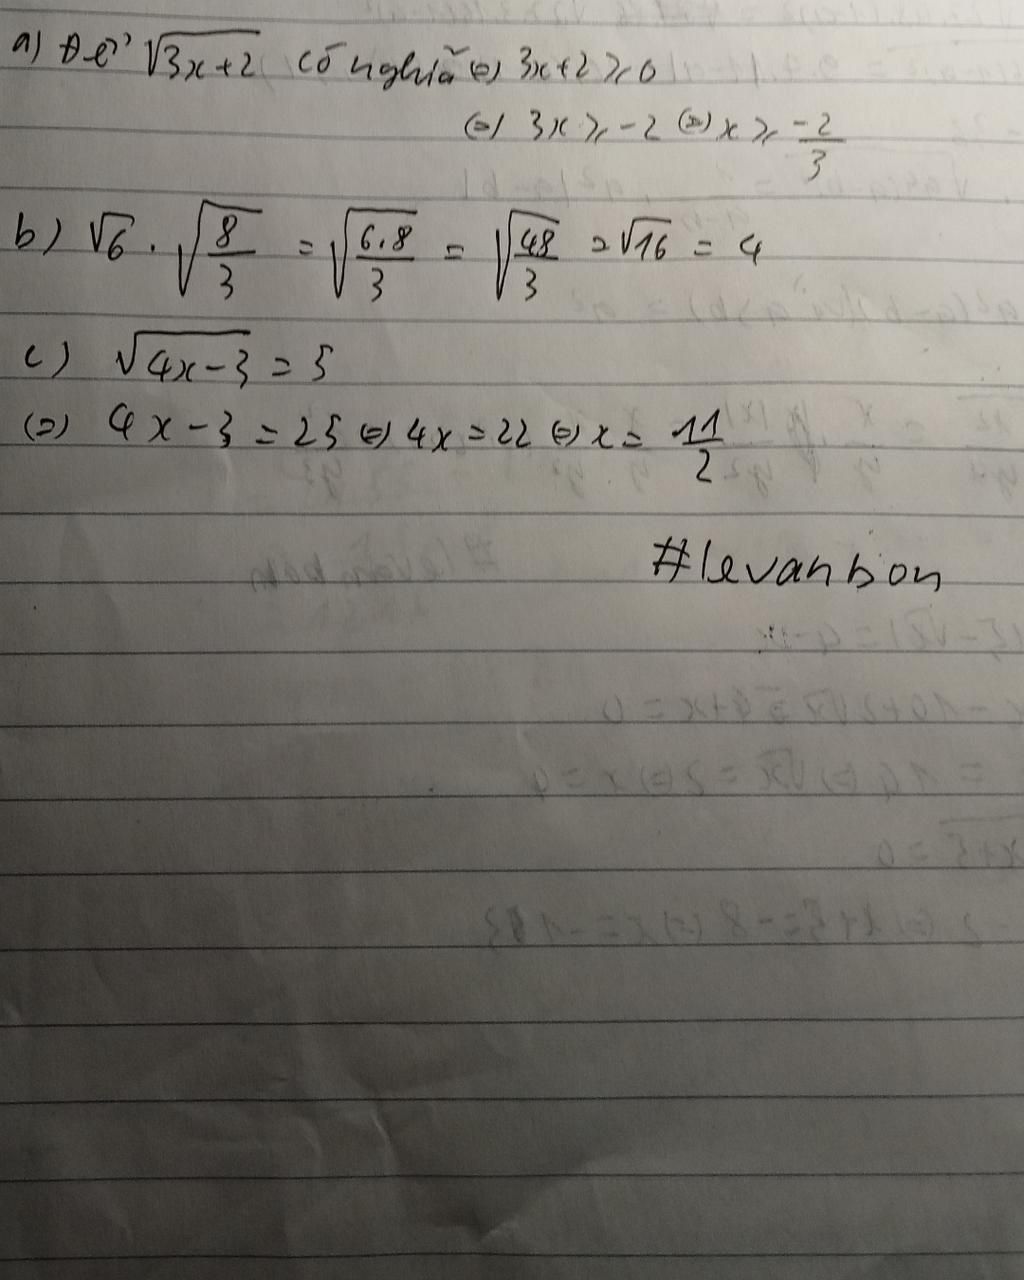 a) Để √3x+2 có nghĩa (=) 3x+2 ⩾ 0
(=) 3x ⩾ -2 (=) x ⩾ -2/3
b) √6 . √8/3 = √6.8/3 = √48/3 = √16 = 4
c) √4x-3 = 5
(=) 4x-3 = 25 (=) 4x = 22 (=) x = 11/2
#levanbon